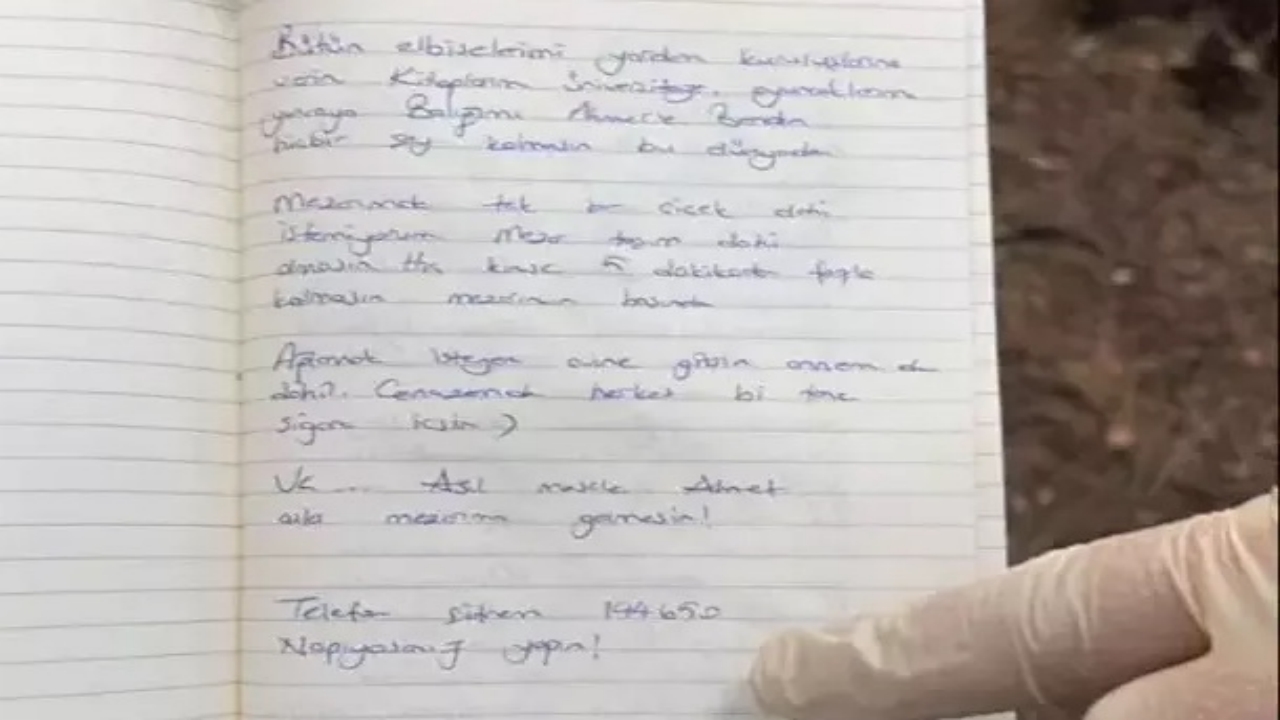 Bütün elbiselerimi yardım kuruluşlarına
verin Kitaplarım Üniversiteye,
yuvaya Balığımı Ahmet'e
hiçbir şey kalmasın bu dünyada
Mezarımda tek bir çicek dahi
istemiyorum Mezar taşım dahi
olmasın Hiç kimse 5 dakikadan fazla
kalmasın mezarımın başında
Ağlamak isteyen evine gitsin annem de
dahil. Cenazemde herkes bi tane
sigara içsin )
Ve ... Asıl mesele Ahmet
asla mezarıma gelmesin!
Telefon şifrem 144650
Napıyosanız yapın!